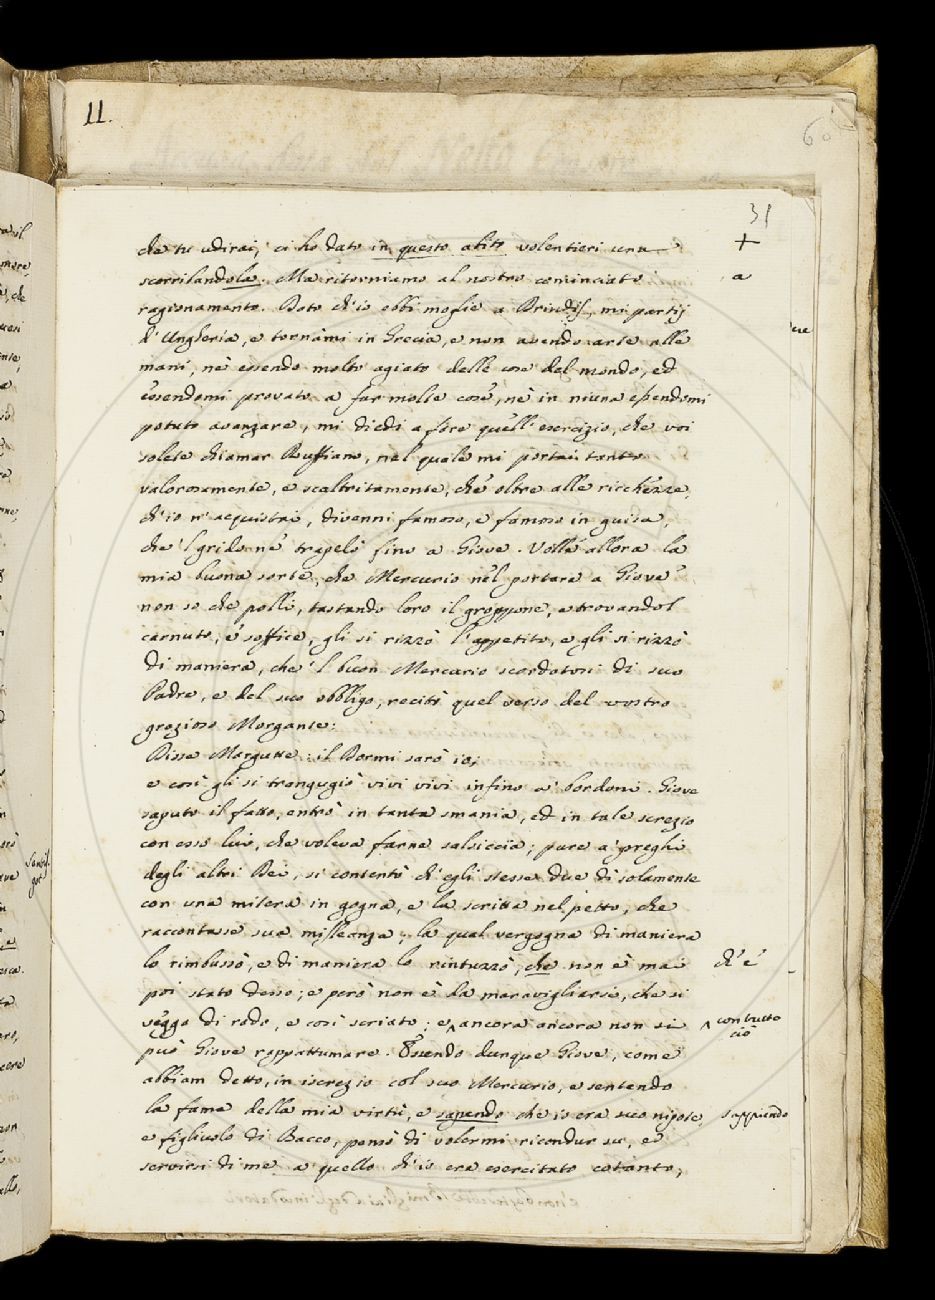 11.
60
31
che tu udirai, ci ho dato in questo abito volentieri una +
scorrilandola. Ma ritorniamo al nostro cominciato a
ragionamento. Doto ch'io ebbi moglie a Brindisi, mi partij
d'Ungheria, e tornàmi in Grecia, e non avendo arte alle
mani, nè essendo molto agiato delle cose del mondo, ed
essendomi provato a far molte cose, nè in niuna essendomi
potuto avanzare, mi diedi a fare quell'esercizio, che voi
solete chiamar Ruffiano, nel quale mi portai tanto
valorosamente, e scaltritamente, che oltre alle ricchezze,
ch'io n'acquistai, divenni famoso, e famoso in guisa,
che 'l grido nè trapelò fino a Giove. Volle allora la
mia buona sorte, che Mercurio nel portare a Giove
non so che polli, tastando loro il groppone, e trovandol
carnuto, e soffice, gli si rizzò l'appetito, e gli si rizzò
di maniera, che 'l buon Mercurio scordatosi di suo
Padre, e del suo obbligo, recitò quel verso del vostro
grazioso Morgante:
Disse Margutte: il Dormi sarò io;
e così gli si trangugiò vivi vivi infino a' bordoni. Giove
saputo il fatto, entrò in tanta smania, ed in tale screzio
con esso lui, che voleva farne salsiccia; pure a' preghi
degli altri Dei, si contentò ch'egli stesse due dì solamente
con una mitera in gogna, e la scritta nel petto, che
raccontasse sua misleanza; la qual vergogna di maniera
lo rimbussò, e di maniera lo rintuzzò, che non è mai ch'è
poi stato desso; e però non è da maravigliarsi, che si
vegga di rado, e così scriato; e ^ ancora ancora non si ^ con tutto ciò
può Giove rappattumare. Essendo dunque Giove, come
abbiam detto, in iscrezio col suo Mercurio, e sentendo
la fama della mia virtù, e sapendo che io era suo nipote, sappiendo
e figliuolo di Bacco, pensò di volermi ricondur su, e
servirsi di me a quello ch'io era esercitato cotanto,